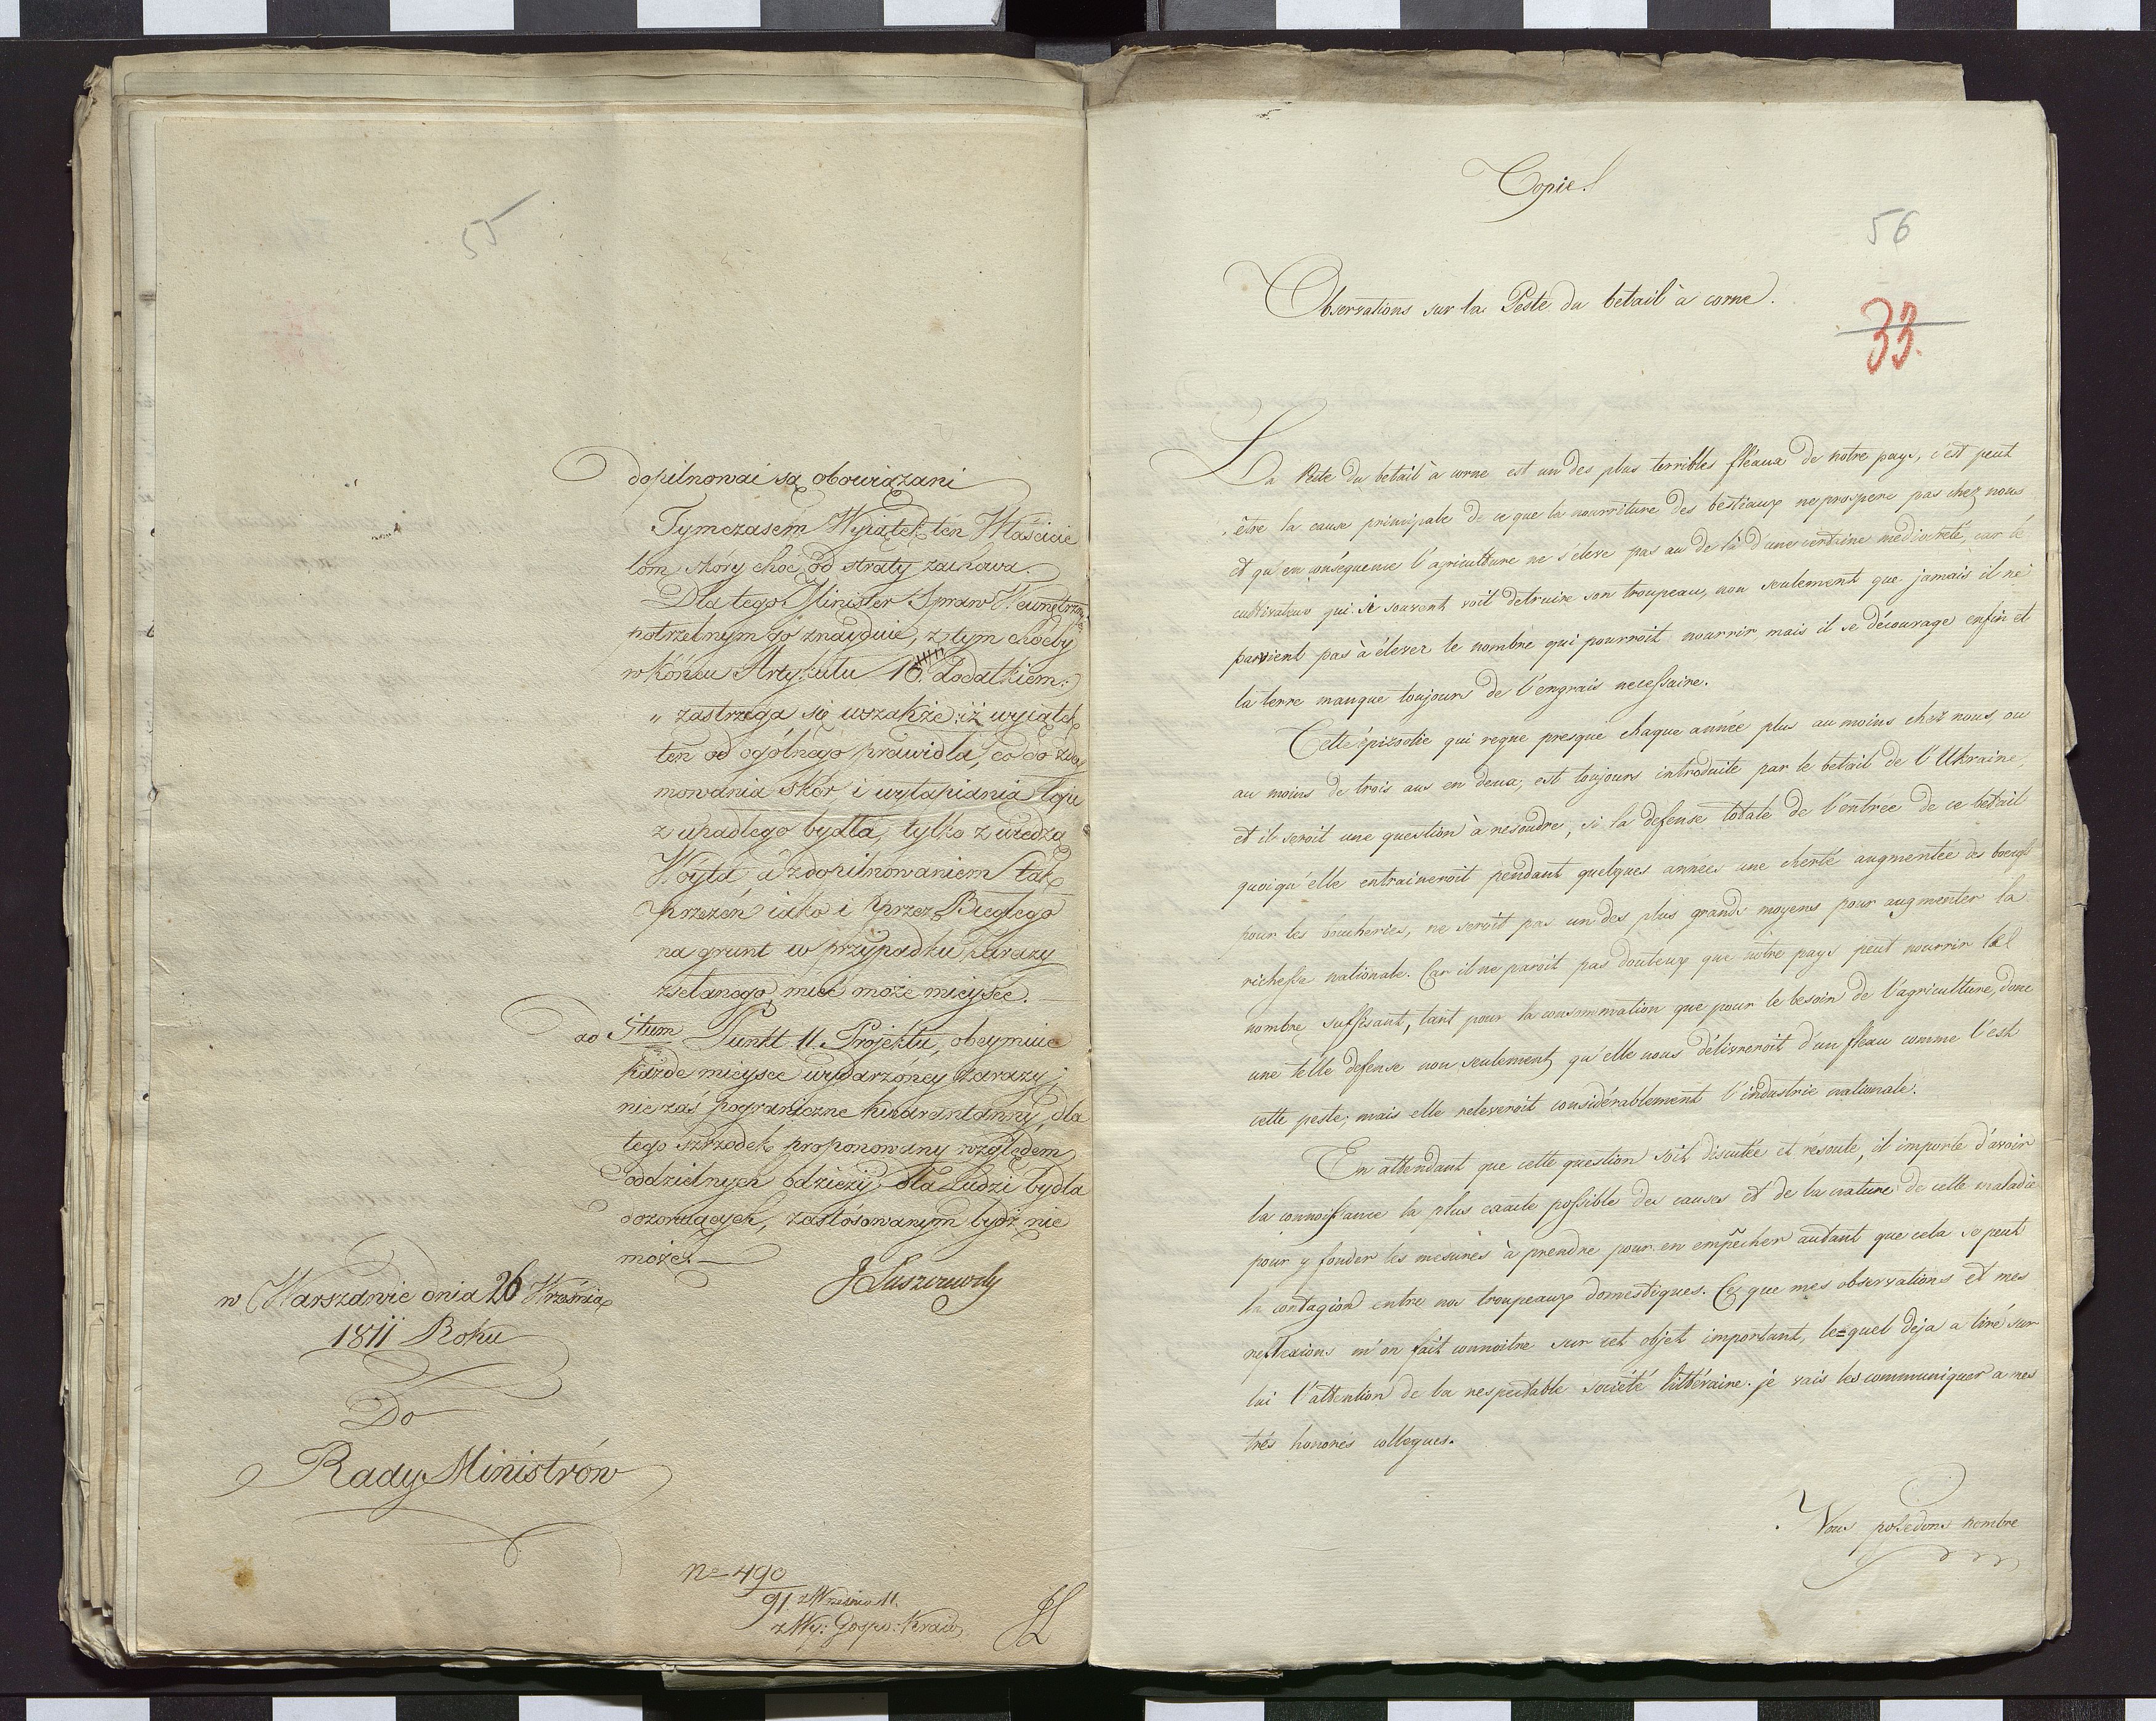 55
dopilnować są obowiązani
Tymczasem Wyiątek ten Właścicie
lom skóry choć od straty zachowa.
Dla tego Minister Spraw Wewnętrznych
potrzebnym go znayduie, z tym chócby
w końcu Artykułu 10. dodatkiem:
„ zastrzega się wszakże iż wyiątek
ten od ogólnego prawidła, co do zdey
mowania skór i wytapiania łoju
z upadłego bydła, tylko z wiedzą
Wóyta a z dopilnowaniem tak
przezeń iako i przez Biegłego
na grunt w przypadku zarazy
zsełanego mieć może mieysce.
ad 5tum Punkt 11. Projektu, obeymuie
każde mieysce wydarzóney zarazy;
nie zaś pograniczne kwarantanny, dla
tego szrzodek proponowany względem
oddzielnych odzieży dla Ludzi bydła
dozoruiących, zastósowanym bydź nie
może.
J Łuszczewski
w Warszawie dnia 26 Września
1811 Roku
Do
Rady Ministrów
No 490
91 z Września 11.
z Wy: Gospo: Kraio
JL
Copie.
56
Observations sur la Peste du betail à corne.
33.
La Peste du betail à corne est un des plus terribles fléaux de notre pays, c'est peut
être la cause principale de ce que la nourriture des bestiaux ne prospere pas chez nous
et qu'en conséquence l'agriculture ne s'éleve pas au de là d'une certaine mediocreté, car le
cultivateur qui si souvent voit detruire son troupeau, non seulement que jamais il ne
parvient pas à élever le nombre qui pourroit nourrir mais il se décourage enfin et
la terre manque toujours de l'engrais necessaire.
Cette épizootie qui regne presque chaque année plus au moins chez nous, ou
au moins de trois ans en deux, est toujours introduite par le betail de l'Ukraine,
et il seroit une question à resoudre, si la defense totale de l'entrée de ce bétail
quoiqu'elle entraineroit pendant quelques années une cherté augmentée des boeufs
pour les boucheries, ne seroit pas un des plus grands moyens pour augmenter la
richesse nationale. Car il ne paroit pas douteux que notre pays peut nourrir le
nombre suffisant, tant pour la consommation que pour le besoin de l'agriculture, donc
une telle defense non seulement qu'elle nous délivreroit d'un fleau comme l'est
cette peste; mais elle releveroit considérablement l'industrie nationale.
En attendant que cette question soit discutée et résoute, il importe d'avoir
la connoissance la plus exacte possible des causes et de la nature de cette maladie
pour y fonder les mesures à prendre pour en empêcher autant que cela se peut
la contagion entre nos troupeaux domestiques. Ce que mes observations et mes
reflexions m'on fait connoitre sur cet objet important, le=quel deja a tiré sur
lui l'attention de la respectable société littéraire. je vais les communiquer a mes
trés honorés collegues.
Nous possedons nombre